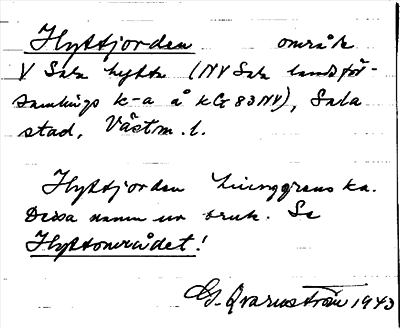 Hyttjorden område
V Sala hytta (NV Sala landsför-
samlings k-a å kG 83 NV), Sala
stad, Västm. l.
Hyttjorden Livinggrens ka.
Dessa namn ur bruk. Se
Hyttområdet!
G. Qvarnström 1943